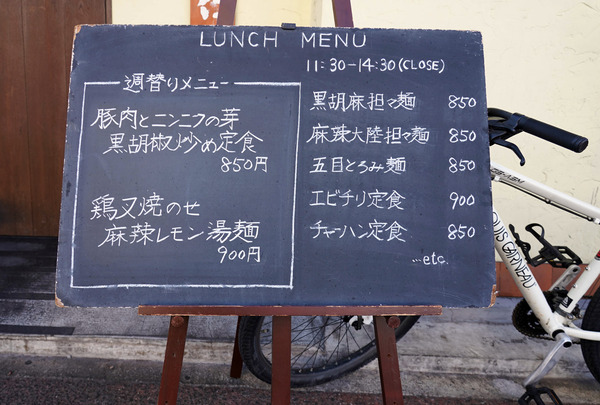 LUNCH MENU
11:30-14:30(CLOSE)
週替りメニュー
豚肉とニンニクの芽
黒胡椒炒め定食
850円
鶏叉焼のせ
麻辣レモン湯麺
900円
黒胡麻担々麺 850
麻辣大陸担々麺 850
五目とろみ麺 850
エビチリ定食 900
チャーハン定食 850
...etc.
LOUIS GARNEAU